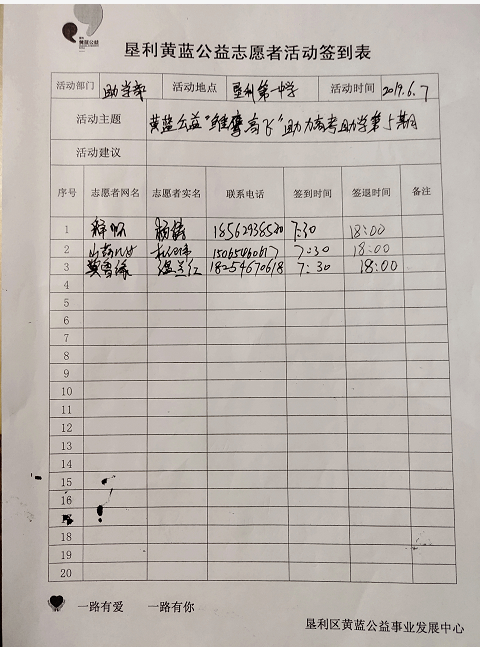 黄蓝公益
垦利黄蓝公益志愿者活动签到表
活动部门 助学部 活动地点 垦利第一中学 活动时间 2019.6.7
活动主题 黄蓝公益"雏鹰高飞"助力高考助学第5期
活动建议
序号 志愿者网名 志愿者实名 联系电话 签到时间 签退时间 备注
1 18562938520 7:30 18:00
2 15065460617 7:30 18:00
3 温兰红 18254670618 7:30 18:00
4
5
6
7
8
9
10
11
12
13
14
15
16
18
19
20
一路有爱 一路有你
垦利区黄蓝公益事业发展中心